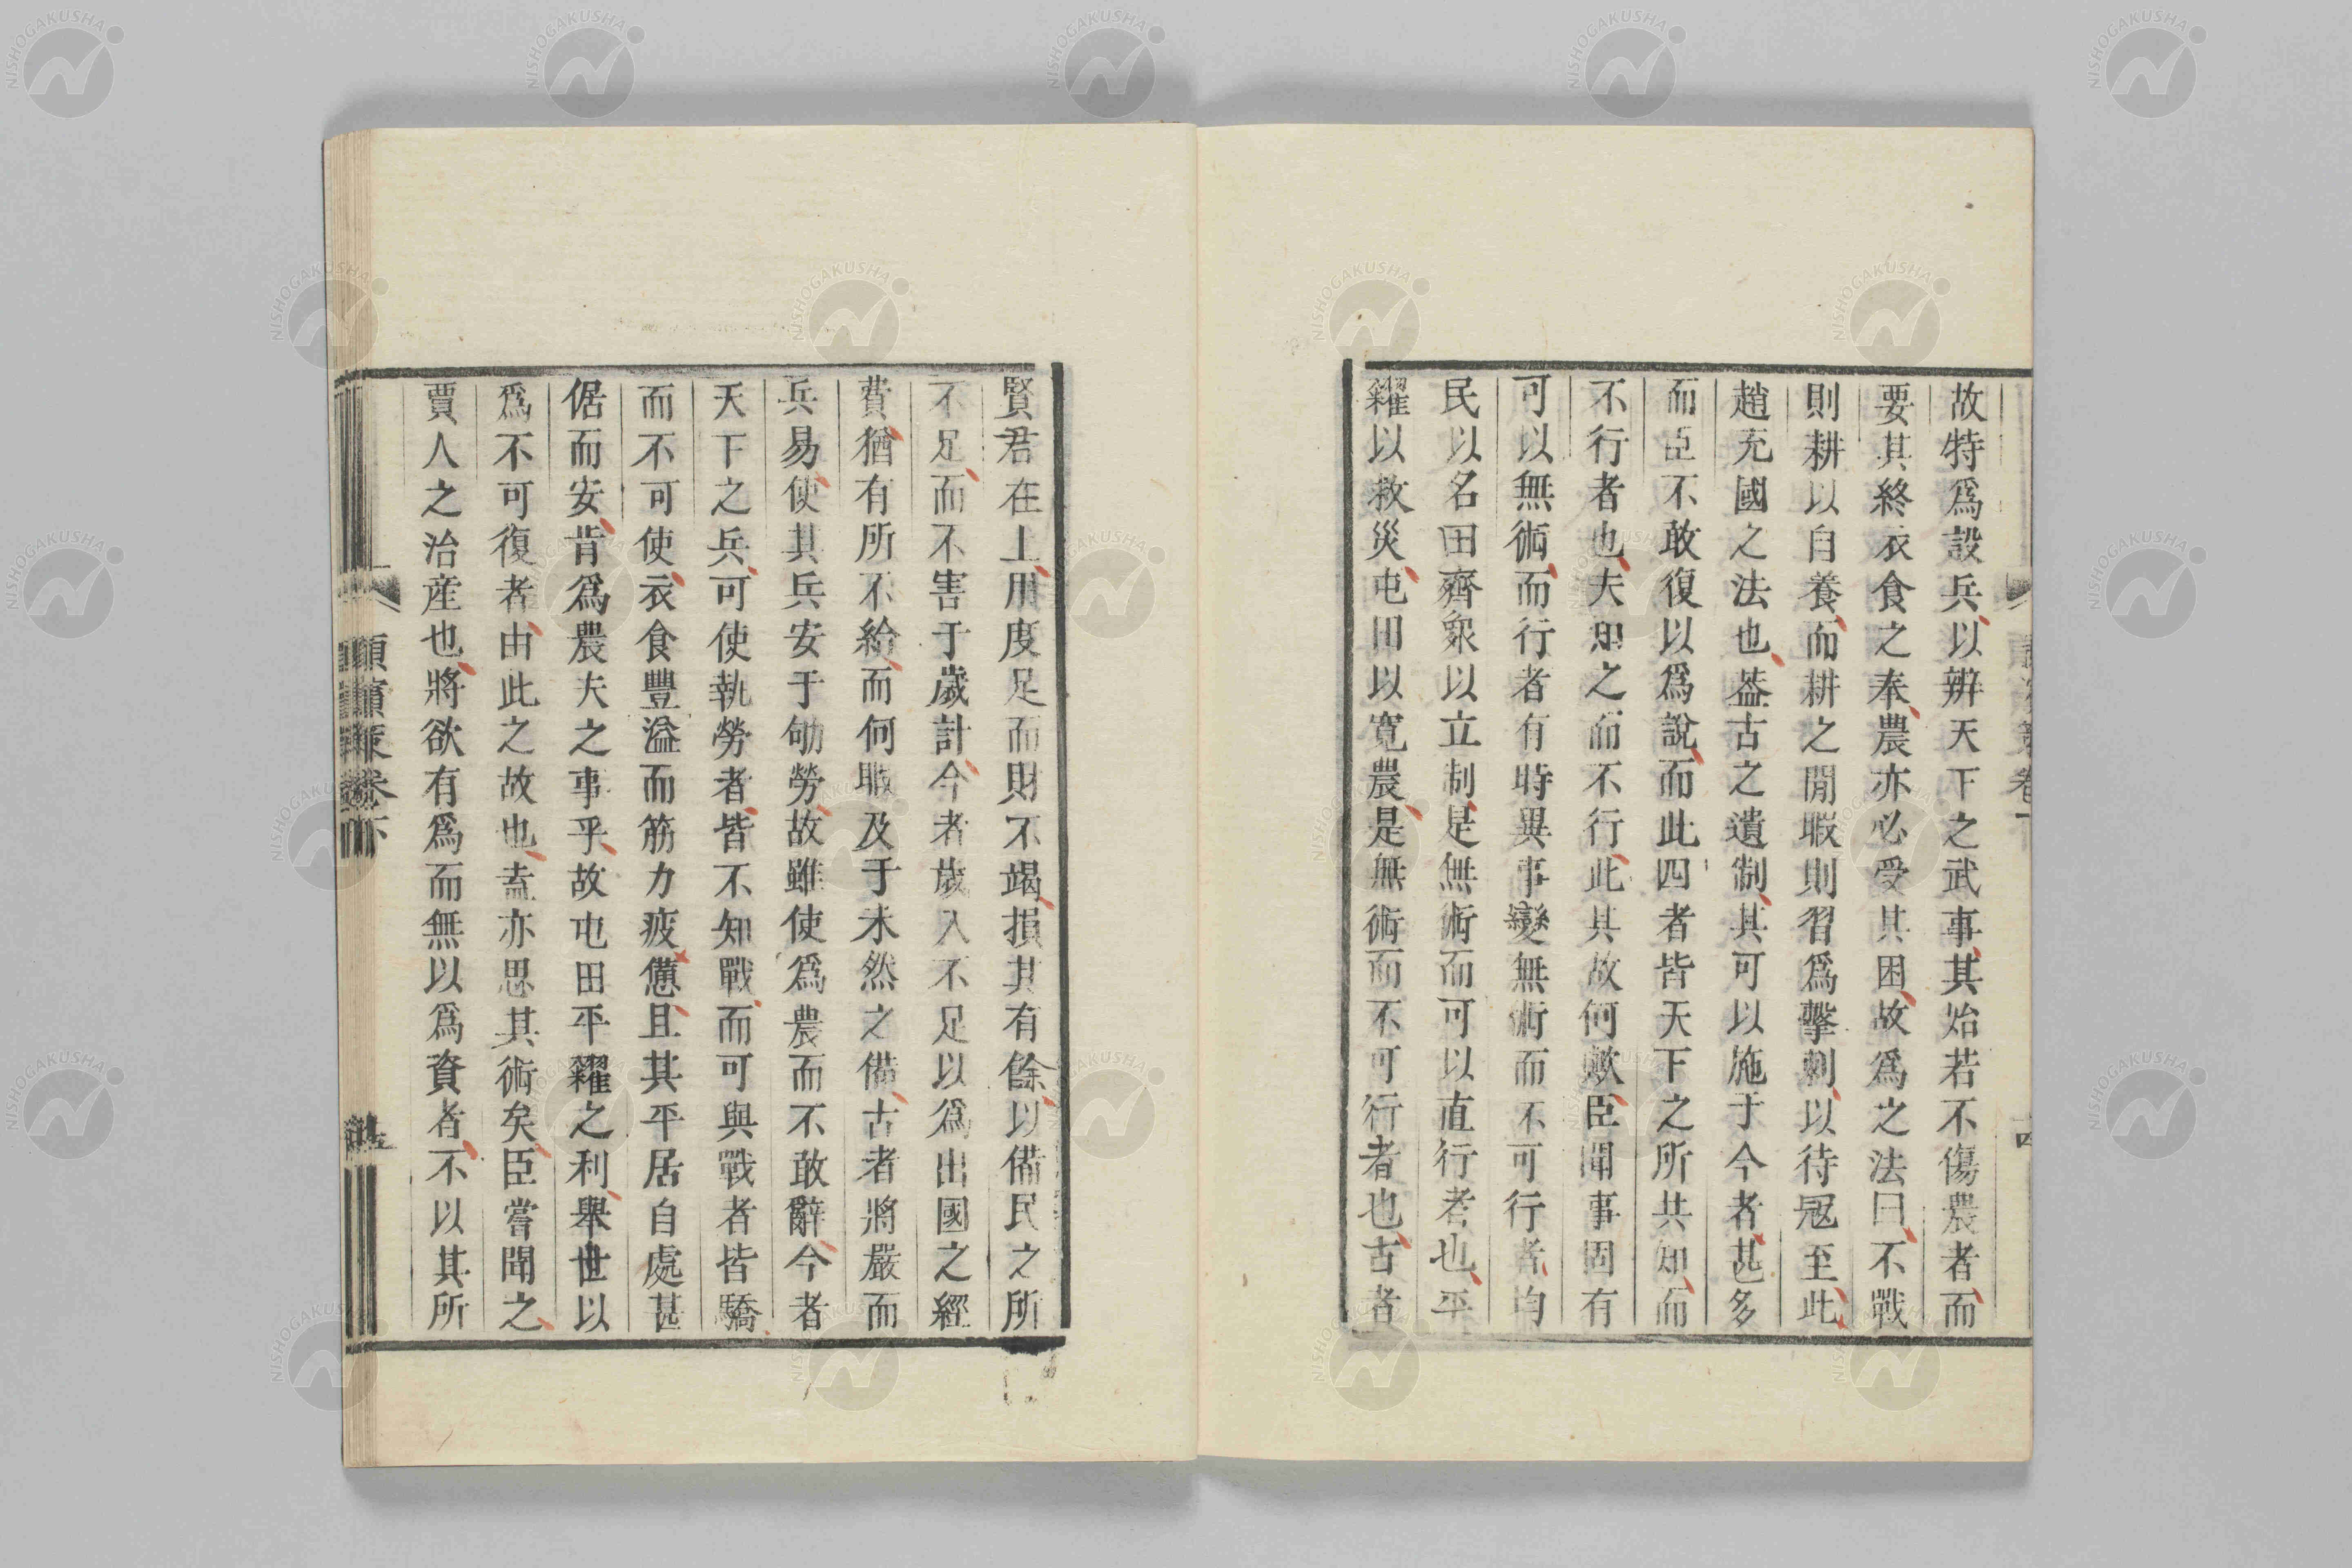 故特爲設兵以辨天下之武事其始若不傷農者而
要其終衣食之奉農亦必受其困故爲之法曰不戰
則耕以自養而耕之閒暇則習爲擊刺以待冦至此
趙充國之法也葢古之遺制其可以施于今者甚多
而臣不敢復以爲說而此四者皆天下之所共知而
不行者也夫知之而不行此其故何歟臣聞事固有
可以無術而行者有時異事變無術而不可行者均
民以名田齊衆以立制是無術而可以直行者也平
糴以救災屯田以寬農是無術而不可行者也古者
賢君在上用度足而財不竭損其有餘以備民之所
不足而不害于歲計今者歲入不足以爲出國之經
費猶有所不給而何暇及于未然之備古者將嚴而
兵易使其兵安于劬勞故雖使爲農而不敢辭今者
天下之兵可使執勞者皆不知戰而可與戰者皆驕
而不可使衣食豐溢而筋力疲憊且其平居自處甚
倨而安肯爲農夫之事乎故屯田平糴之利舉世以
爲不可復者由此之故也葢亦思其術矣臣嘗聞之
賈人之治産也將欲有爲而無以爲資者不以其所
潁濱策卷下
NISHOGAKUSHA